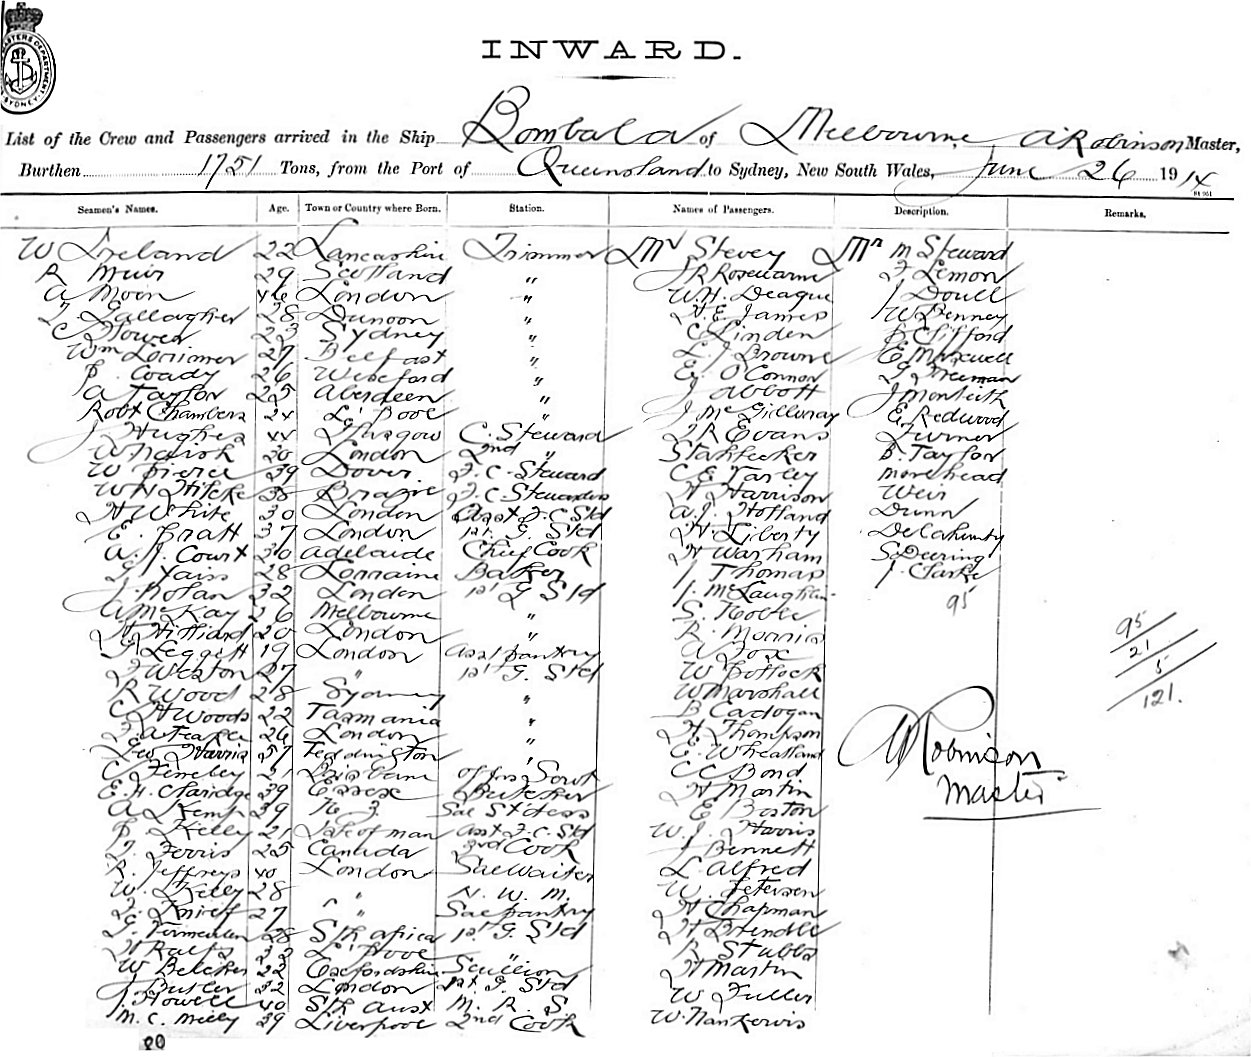 INWARD.
List of the Crew and Passengers arrived in the Ship Bombala of Melbourne, A Robinson Master,
Burthen 1751 Tons, from the Port of Queensland to Sydney, New South Wales, June 26 1914
Seamen's Names. Age. Town or Country where Born. Station. Names of Passengers. Description. Remarks.
W Ireland 22 Lancashire Trimmer Mr Stevey Mr M Steward
R Muir 29 Scotland " J R Rosewarne F Lemon
A Moon 46 London " W.H. Deague J Doull
T Gallagher 28 Dunoon " H. E. James W Denney
C Hower 23 Sydney " C Linden B Clifford
Wm Lorrimer 27 Belfast " L. J Browne E Maxwell
P. Coady 26 Wexford " E. O'Connor G Freeman
A Taylor 25 Aberdeen " J Abbott J Monteith
Robt Chambers 24 L'pool " J McGillivray E Redwood
J Hughes 44 Glasgow C. Steward J R Evans Turner
W 30 London 2nd " Stahfecker B. Taylor
W Pierce 39 Dover F. C. Steward C E Farley Morehead
W H 38 F. C. Stewardess H Harrison Weir
H White 30 London Asst F. C Std A.J. Holland Dunn
E. Pratt 37 London 1st G. Std H. Liberty
A. J. Court 30 Adelaide Chief Cook H Warham S Deering
G Yaiss 28 Lorraine Baker J Thomas J. Clarke
J. Nolan 32 London 1st G Std J. McLaughlin 95
A McKay 26 Melbourne " G. Noble
H Hilliard 20 London " R. Morris 95
G Leggett 19 London Asst pantry A Fox 21
F Weston 27 " 1st G. Std W Pollock 5
R Wood 28 Sydney " W Marshall 121.
C H Woods 22 Tasmania " B Cadogan
F A Feaker 26 London " H Thompson
Geo Harris 57 Teddington " E. Wheatland A Robinson
C Finley 21 Brisbane Offrs Servt C C Bond Master
E. H. Claridge 39 Essex Butcher H Martin
A Kemp 39 N. Z. Sal Stdess E Boston
P Kelly 21 Isle of Man Asst F. C. Std W. J. Harris
T. Ferris 25 Canada 3rd Cook J Bennett
R. Jeffreys 40 London Sal Waiter L Alfred
W. Kelly 28 " N. W. M. W. Petersen
F. Knief 27 " Sal pantry H Chapman
G. 28 Sth Africa 1st G. Std H Brindle
H Ralfs 33 L'pool " R Stubbs
W Belcher 22 Oxfordshire Scullion H Martin
J Butler 32 London 1st G. Std W Fuller
J. Howell 40 Sth Aust M. R. S W. Nankervis
M. C. Melly 39 Liverpool 2nd Cook
80